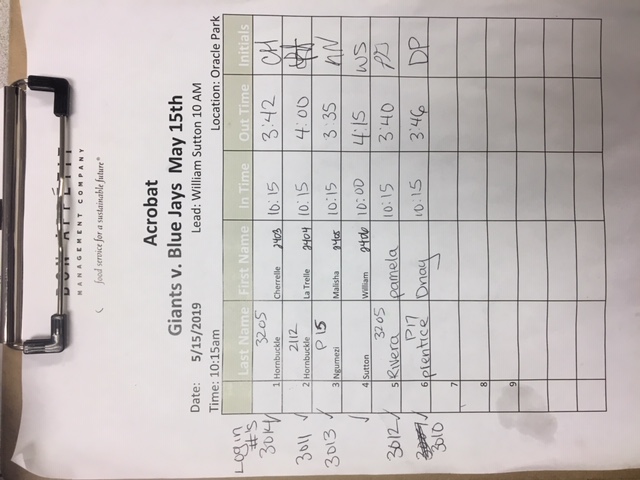 MANAGEMENT COMPANY
food service for a sustainable future®
Acrobat
Giants v. Blue Jays May 15th
Date: 5/15/2019 Lead: William Sutton 10 AM
Time: 10:15am Location: Oracle Park
Login #'s Last Name First Name In Time Out Time Initials
3014 ✓ 1 Hornbuckle 3205 Cherrelle 2403 10:15 3:42 CH
3011 ✓ 2 Hornbuckle 2112 La Trelle 2404 10:15 4:00
3013 ✓ 3 Ngumezi P15 Malisha 2405 10:15 3 35 NN
✓ 4 Sutton William 2406 10:00 4:15 WS
3012 ✓ 5 Rivera 3205 Pamela 10:15 3:40
✓ 3010 6 Prentice P17 Dnay 10:15 3:46 DP
7
8
9